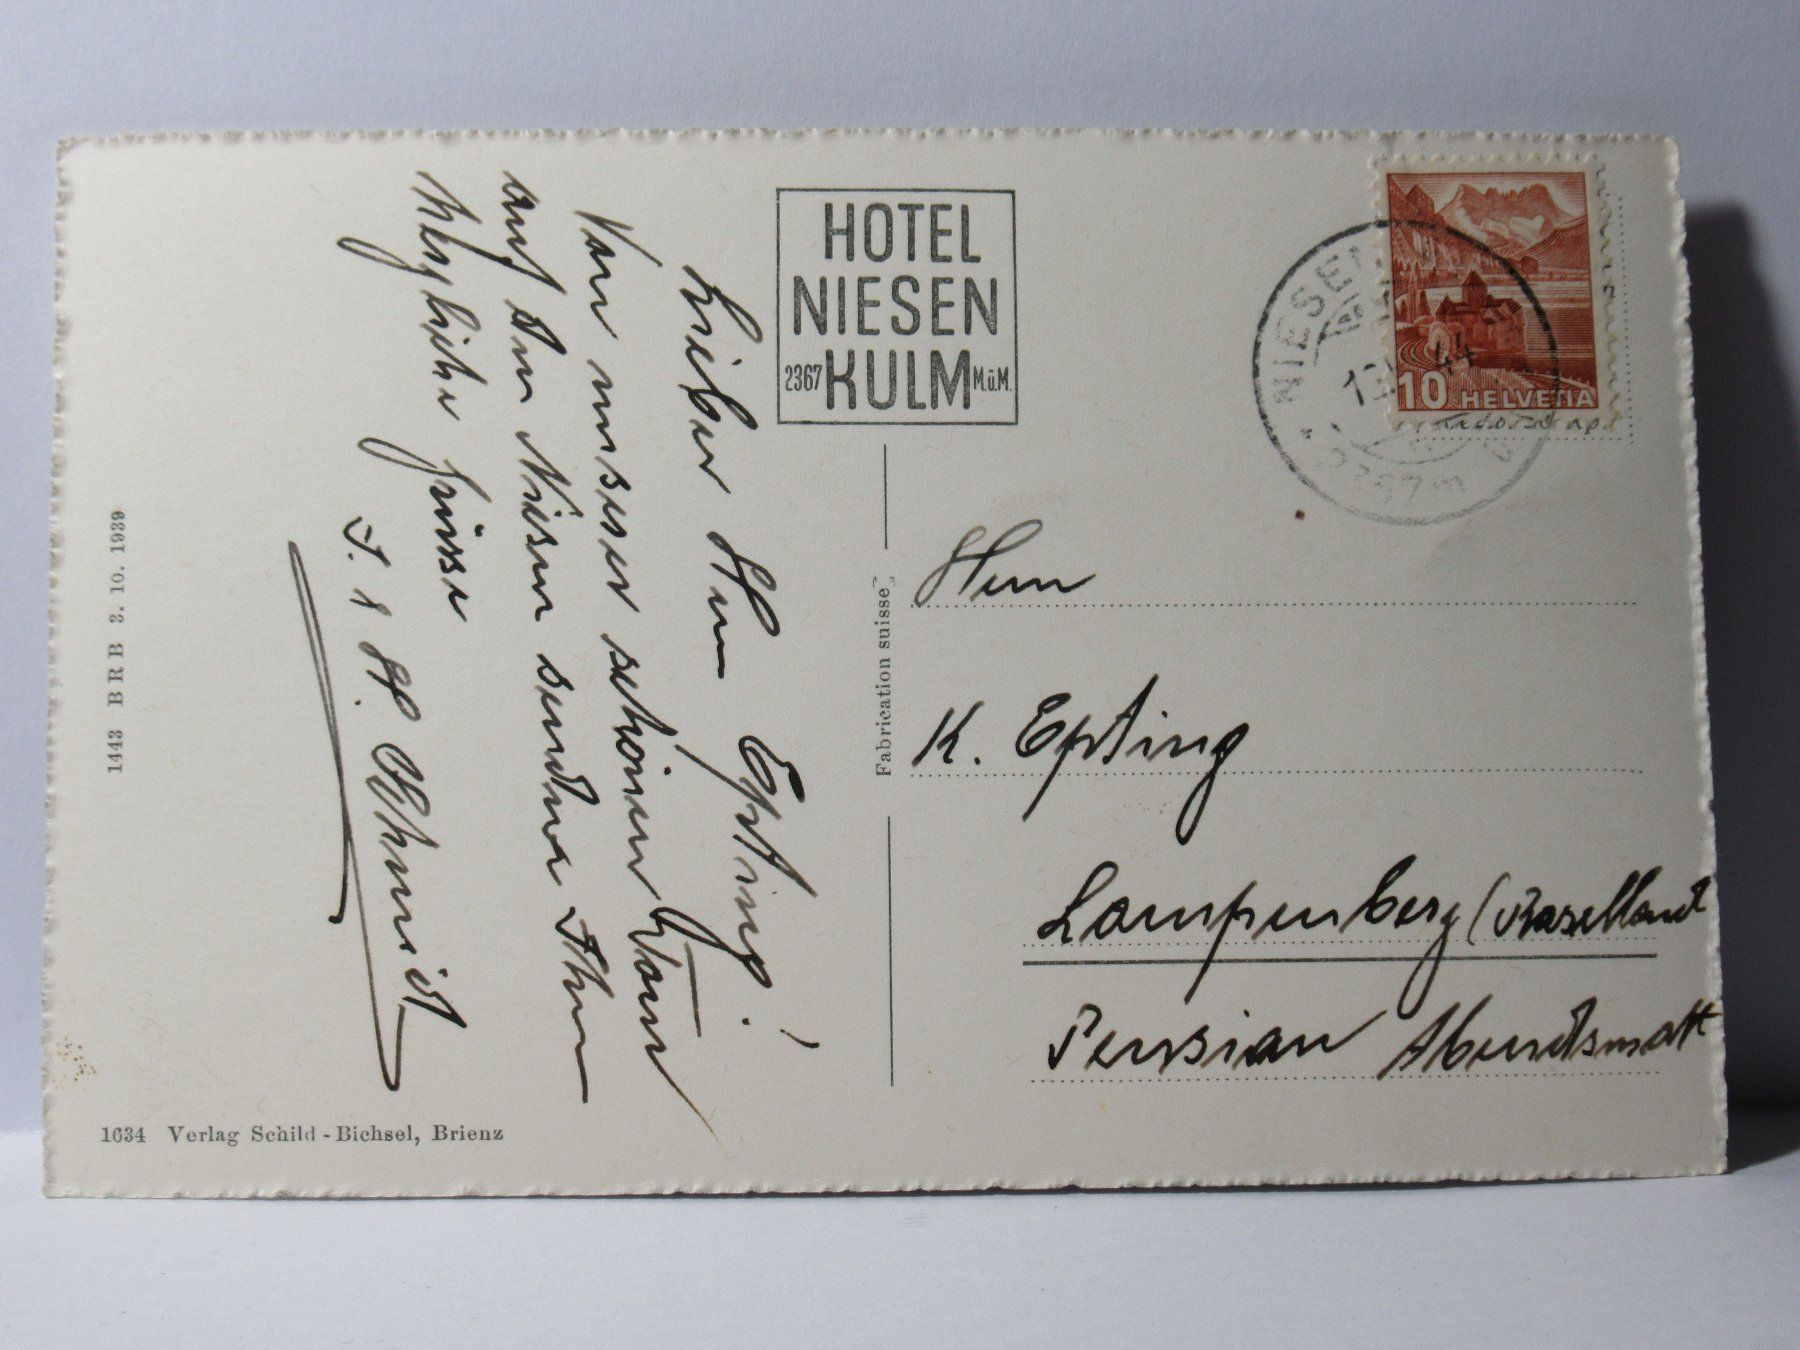 HOTEL
NIESEN
2367 KULM M.ü.M.
10 HELVETIA
NIESEN
2367m
Lieber Herr Epting!
Von unserer schönen Tour
auf den Niesen senden Ihnen
herzliche Grüsse
Schmid
Fabrication suisse
Herrn
K. Epting
Lampenberg (Baselland
Pension Abendsmatt
1443 BRB 3. 10. 1939
1634 Verlag Schild-Bichsel, Brienz